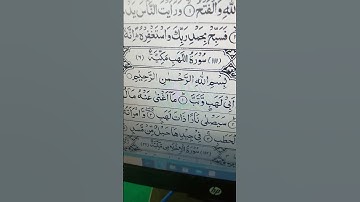 للهِ وَالْفَتْحُ ۙ وَرَاَيْتَ النَّاسَ يَدْ
فَسَبِّحْ بِحَمْدِ رَبِّكَ وَاسْتَغْفِرْهُ ؕ اِنَّهٗ
(١١١) سُوْرَةُ اللَّهَبِ مَكِّيَّةٌ (٦)
بِسْمِ اللّٰهِ الرَّحْمٰنِ الرَّحِيْمِ
اَبِيْ لَهَبٍ وَّتَبَّ ؕ مَاۤ اَغْنٰى عَنْهُ مَالُ
سَيَصْلٰى نَارًا ذَاتَ لَهَبٍ ۚ وَّامْرَاَتُهٗ
الْحَطَبِ ۚ فِيْ جِيْدِهَا حَبْلٌ مِّنْ مَّسَدٍ
hp